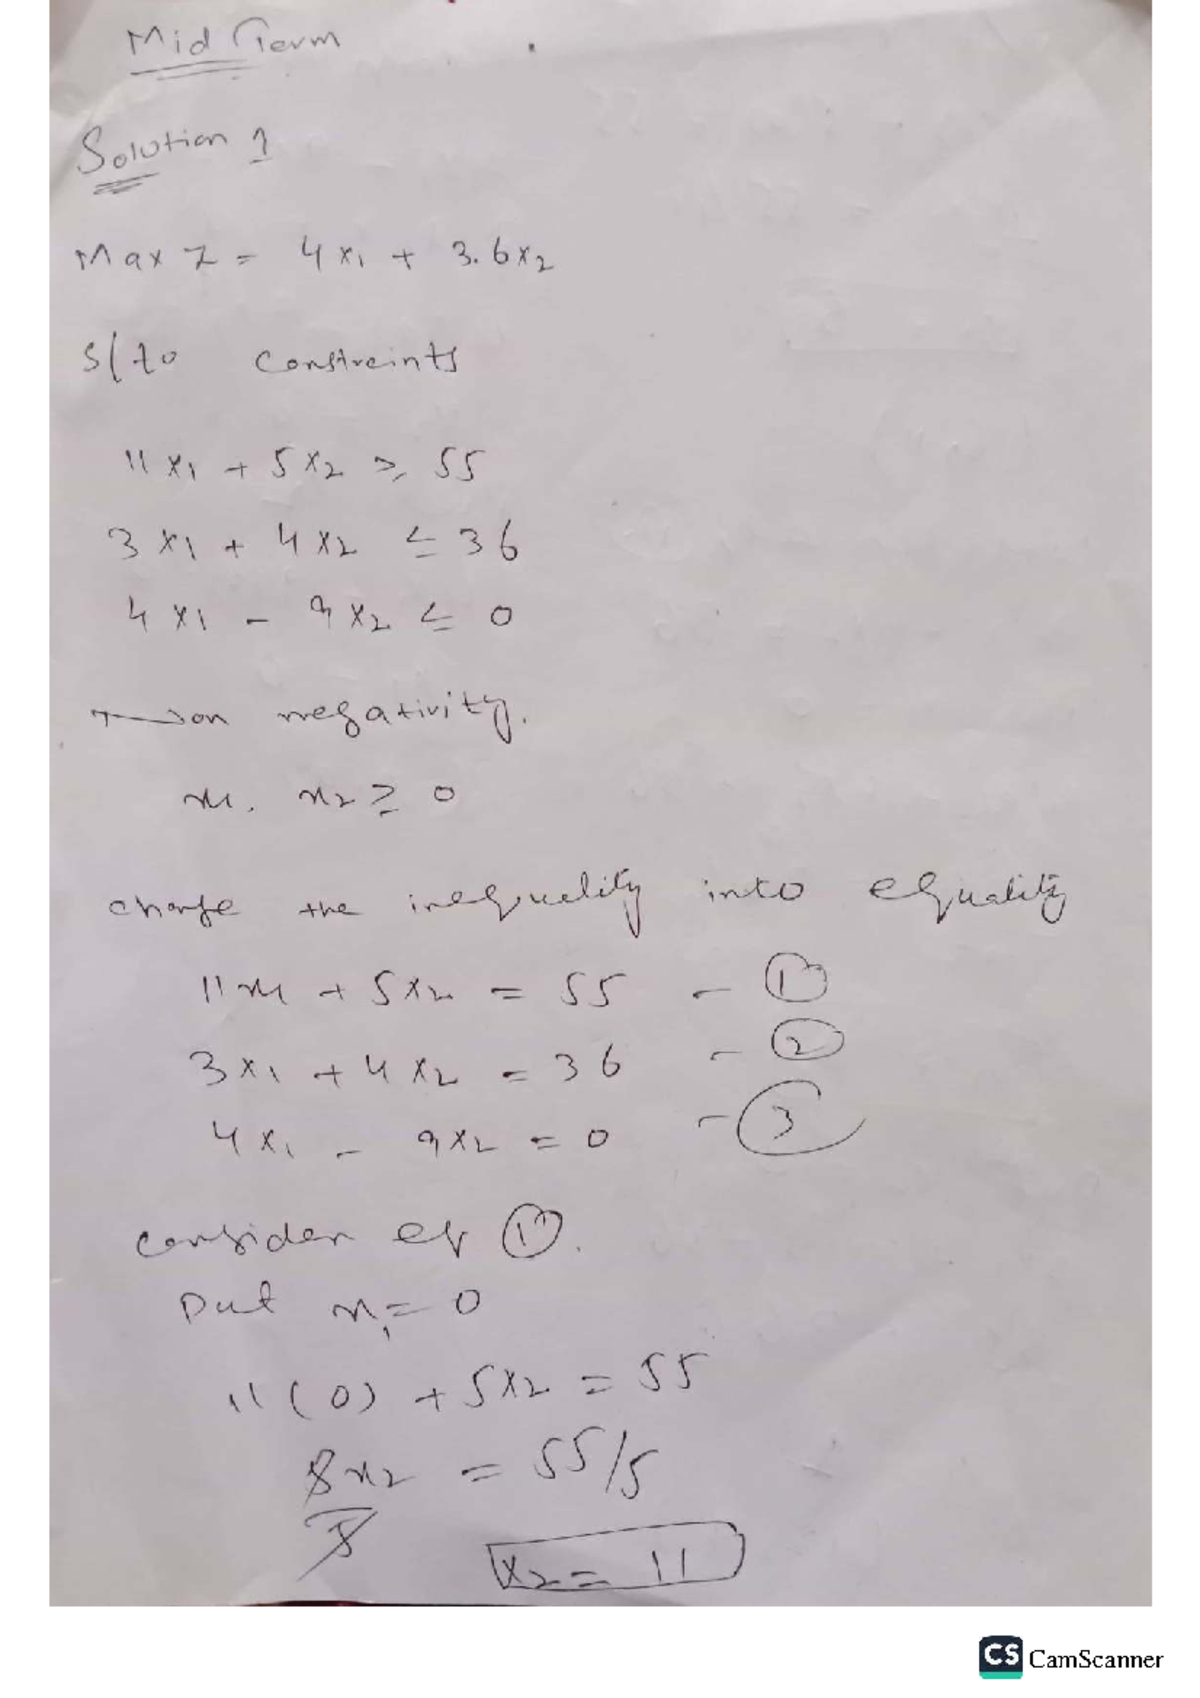 Mid Term
Solution 1
Max Z = 4x₁ + 3.6x₂
s/to constraints
11x₁ + 5x₂ ≥ 55
3x₁ + 4x₂ ≤ 36
4x₁ - 9x₂ ≤ 0
Non negativity.
x₁, x₂ ≥ 0
change the inequality into equality
11x₁ + 5x₂ = 55 - ①
3x₁ + 4x₂ = 36 - ②
4x₁ - 9x₂ = 0 - ③
consider eq ①.
Put x₁ = 0
11(0) + 5x₂ = 55
5x₂ = 55/5
5
x₂ = 11
CS CamScanner